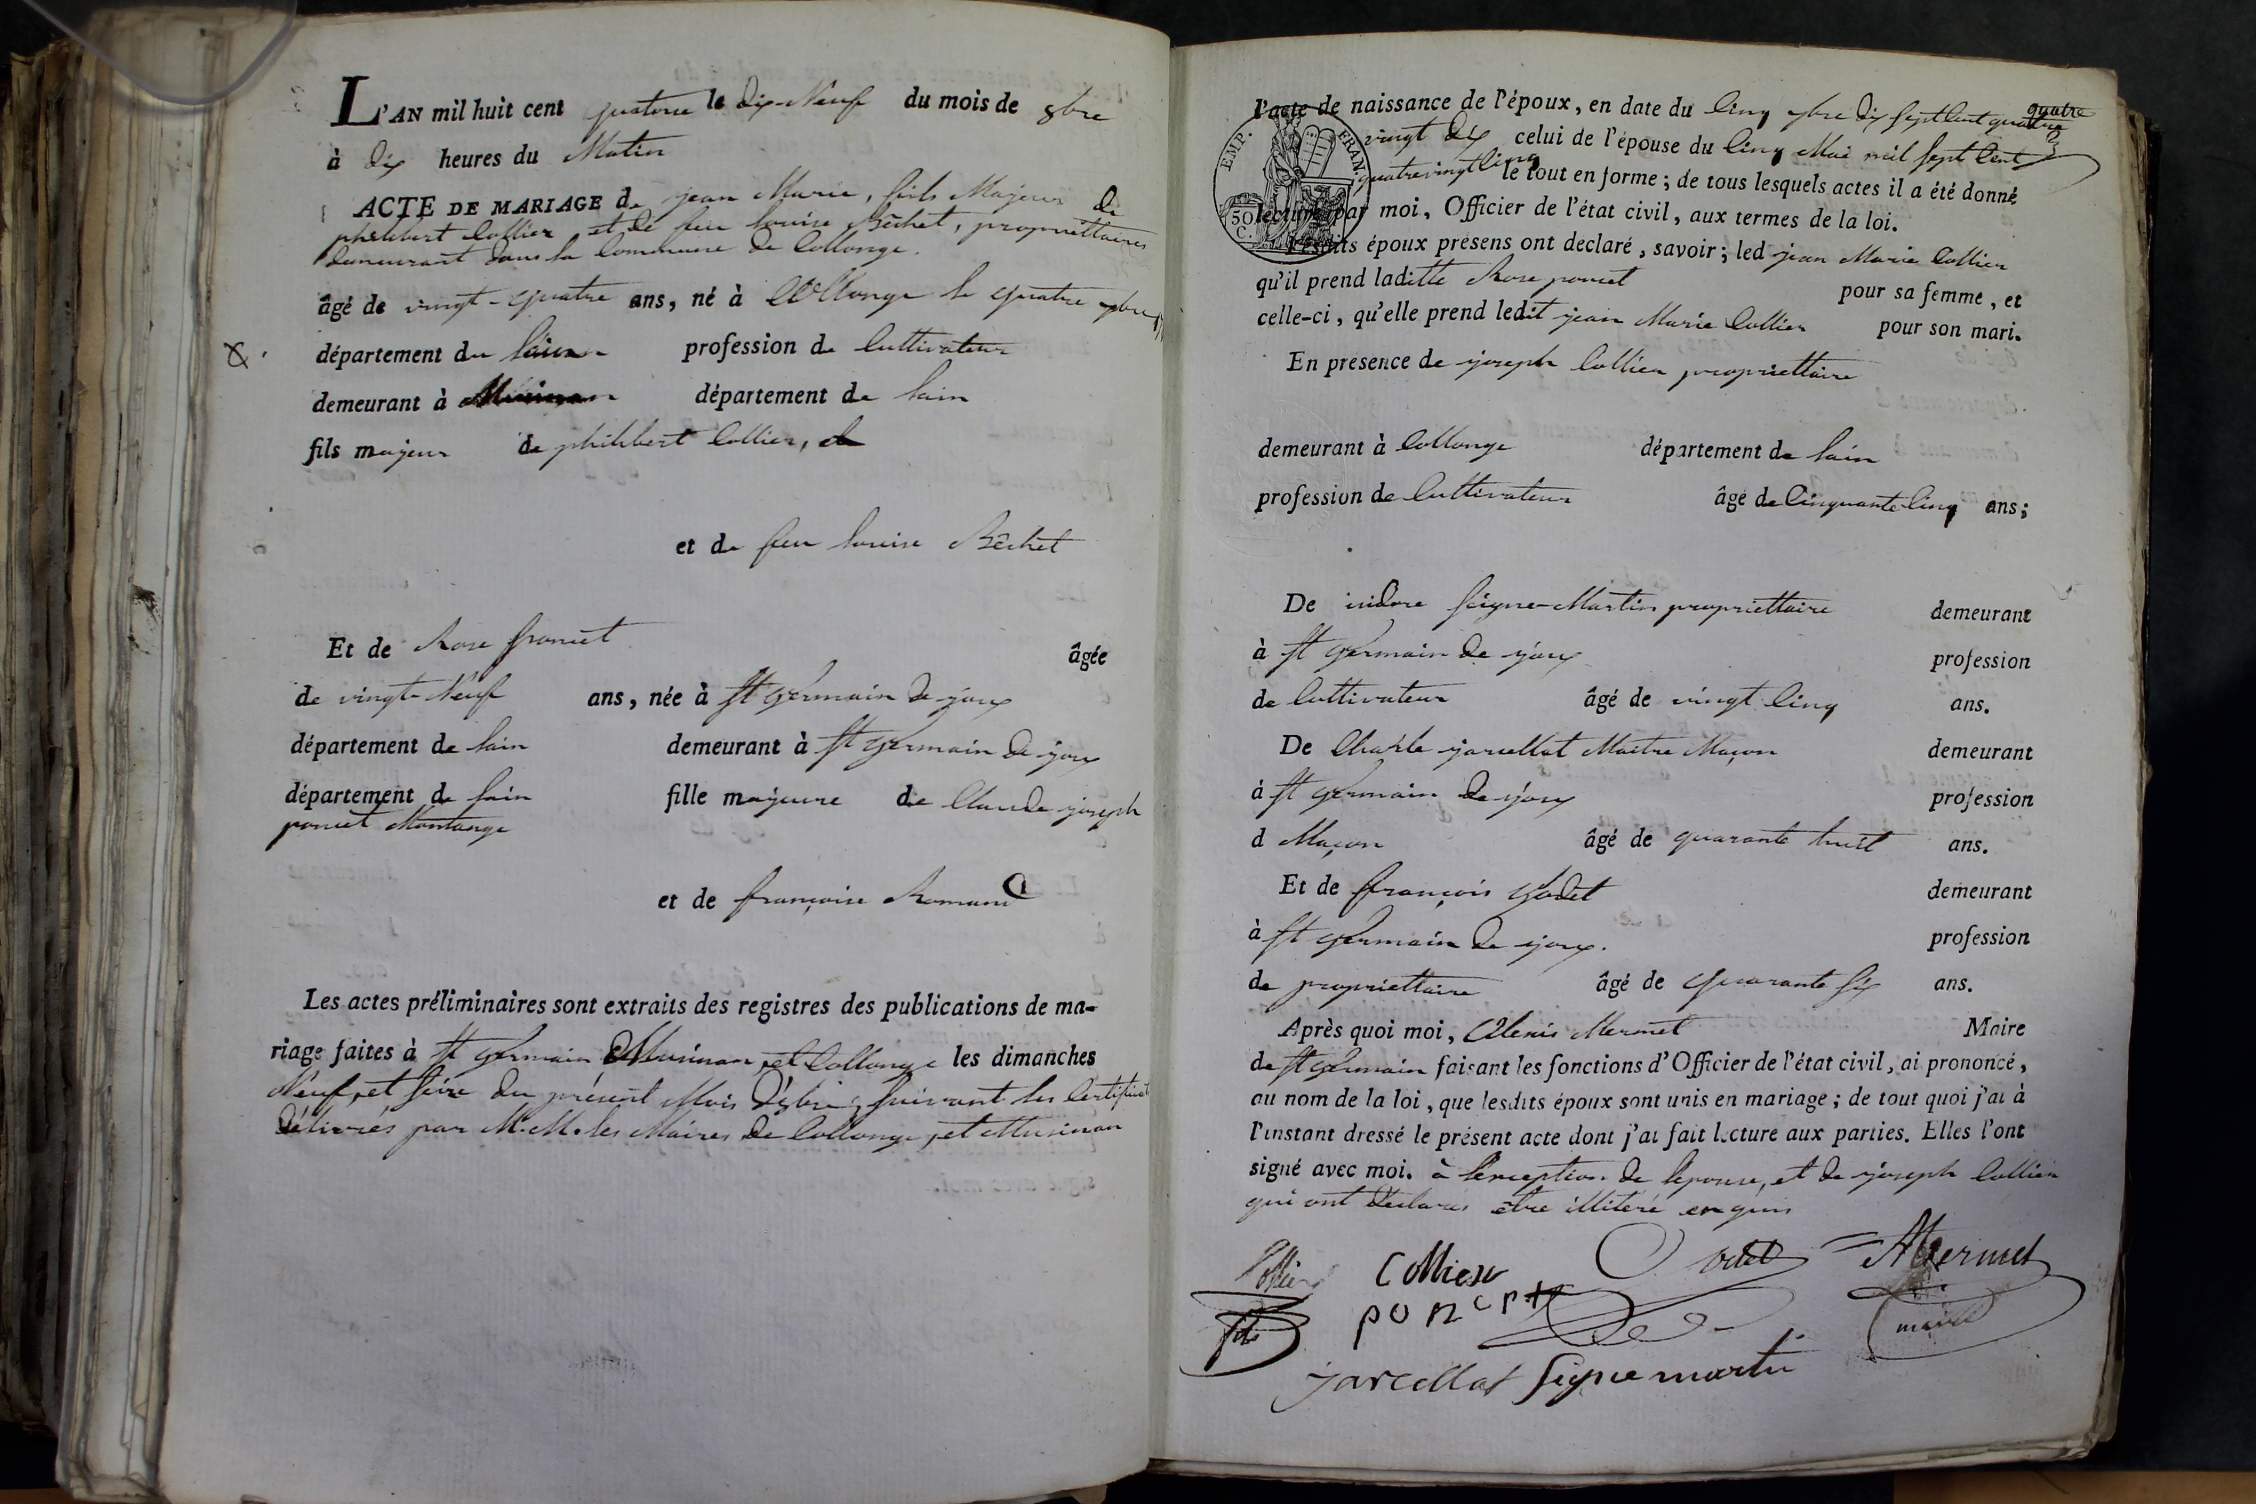 L'AN mil huit cent quatorze le dix-Neuf du mois de 8bre
à dix heures du Matin
ACTE DE MARIAGE de jean Marie, fils Majeur de
philibert Collier et de feu louise Béchet, propriettaires
demeurant dans la Commune de Collonge.
âgé de vingt-quatre ans, né à Collonge le quatre 9bre
département du lain profession de Cultivateur
demeurant à département de lain
fils majeur de philibert Collier, de
et de feu louise Béchet
Et de Rose poncet âgée
de vingt-Neuf ans, née à St germain de joux
département de lain demeurant à St germain de joux
département de lain fille majeure de Claude joseph
poncet Montange
et de françoise Romand
Les actes préliminaires sont extraits des registres des publications de ma-
riage faites à St germain Musinan, et Collonge les dimanches
Neuf, et seize du présent Mois D'8bre; suivant les Certificats
délivrés par M.M. les Maires de Collonge, et Musinan
l'acte de naissance de l'époux, en date du Cinq 9bre dix sept Cent quatre quatre
vingt dix celui de l'épouse du Cinq Mai mil sept Cent
quatrevingt Cinq le tout en forme; de tous lesquels actes il a été donné
lecture par moi, Officier de l'état civil, aux termes de la loi.
Lesdits époux présens ont declaré, savoir; led jean Marie Collier
qu'il prend laditte Rose poncet pour sa femme, et
celle-ci, qu'elle prend ledit jean Marie Collier pour son mari.
En présence de joseph Collier propriettaire
demeurant à Collonge département de lain
profession de Cultivateur âgé de Cinquante-Cinq ans;
De isidore seigne-Martin propriettaire demeurant
à St germain de joux profession
de Cultivateur âgé de vingt Cinq ans.
De Charle jarcellat Maitre Maçon demeurant
à St germain de joux profession
d Maçon âgé de quarante huit ans.
Et de françois Godet demeurant
à St germain de joux. profession
de propriettaire âgé de quarante six ans.
Après quoi moi, Alexis Mermet Maire
de St germain faisant les fonctions d'Officier de l'état civil, ai prononcé,
au nom de la loi, que lesdits époux sont unis en mariage; de tout quoi j'ai à
l'instant dressé le présent acte dont j'ai fait lecture aux parties. Elles l'ont
signé avec moi. à lexception de lepouse, et de joseph Collier
qui ont déclarés etre illitéré enquis
EMP. FRAN.
50 C.
Collier Collier Godet AMermet
fils poncet maire
jarcellat seigne martin